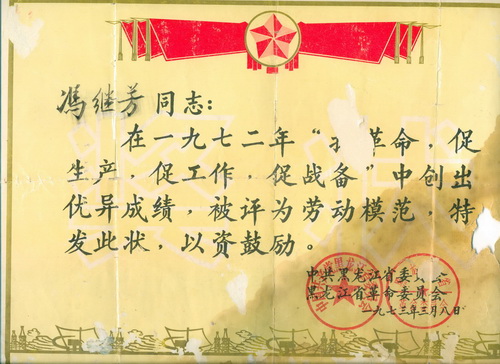 冯继芳同志：
在一九七二年“革命，促
生产，促工作，促战备”中创出
优异成绩，被评为劳动模范，特
发此状，以资鼓励。
中共黑龙江省委
黑龙江省革命委员会
一九七三年三月八日